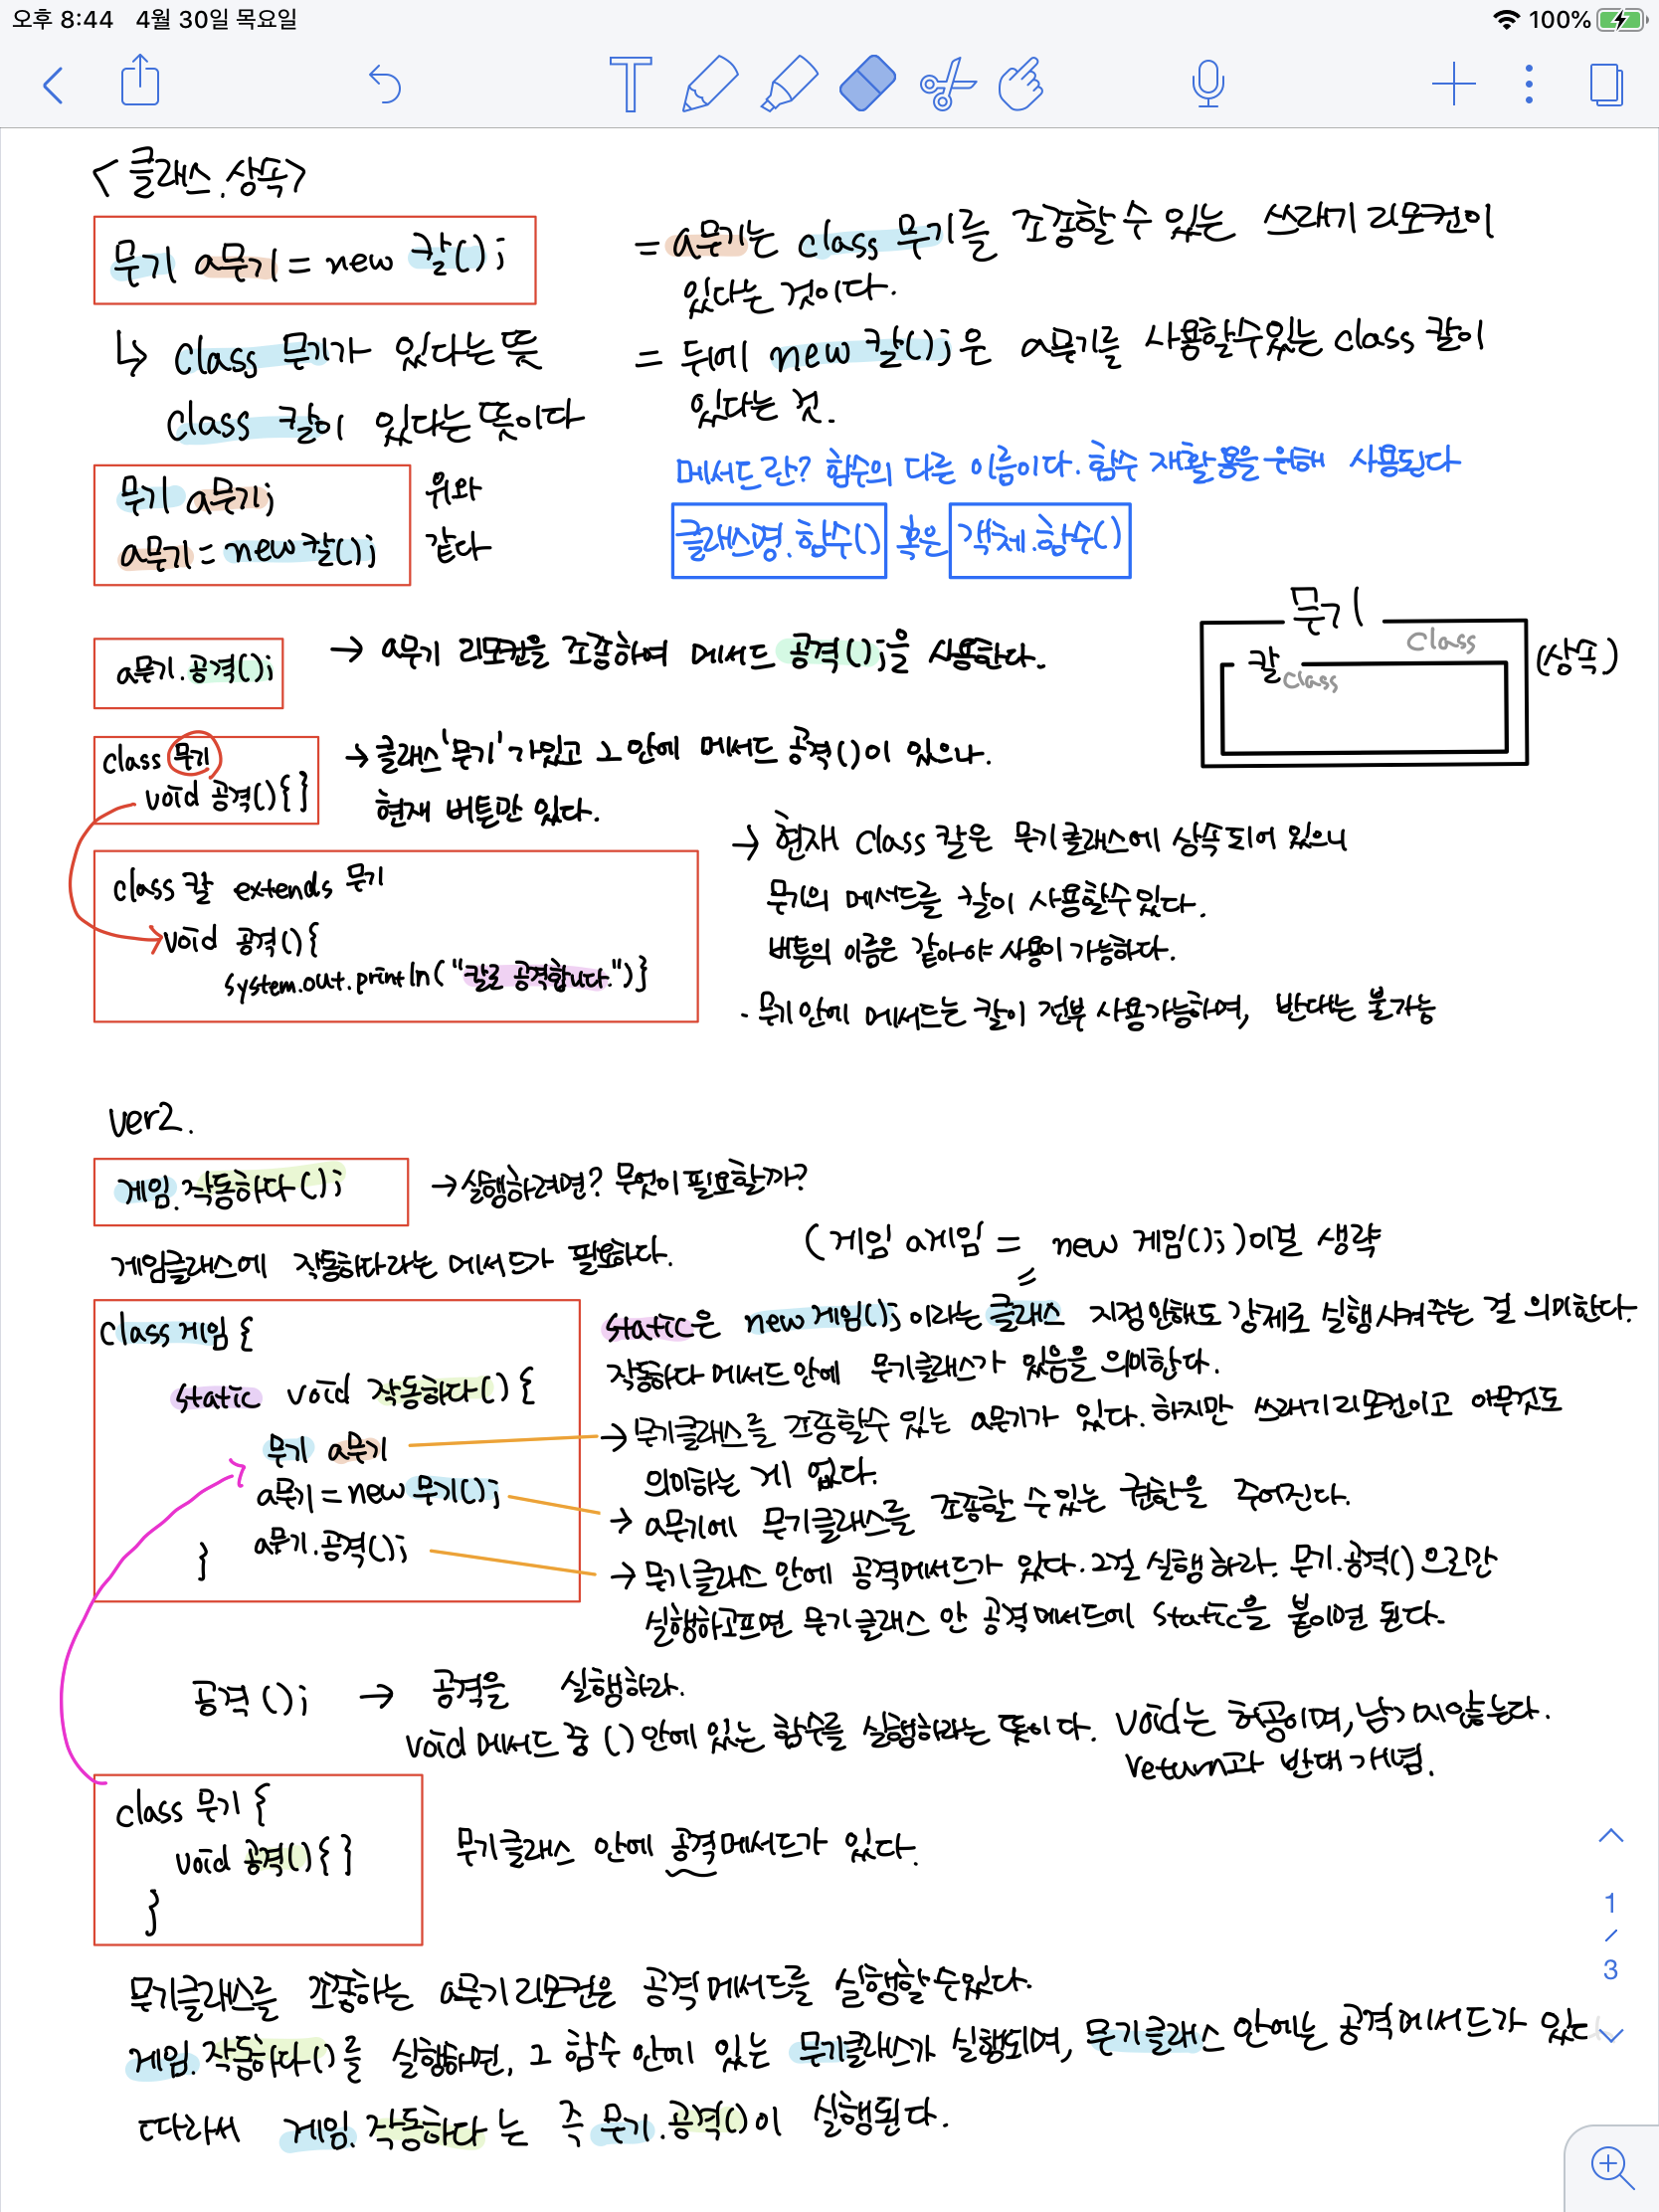 오후 8:44 4월 30일 목요일
100%
<클래스.상속>
무기 a무기 = new 칼();
= a무기는 class 무기를 조종할 수 있는 쓰래기 리모컨이
있다는 것이다.
↳ class 무기가 있다는 뜻
class 칼이 있다는 뜻이다
= 뒤에 new 칼();은 a무기를 사용할수있는 class 칼이
있다는 것.
무기 a무기;
a무기 = new 칼();
위와
같다
메서드란? 함수의 다른 이름이다. 함수 재활용을 위해 사용된다
클래스명.함수() 혹은 객체.함수()
a무기.공격();
→ a무기 리모컨을 조종하여 메서드 공격();을 사용한다.
무기
class
칼
class
(상속)
class 무기
void 공격(){ }
→ 클래스'무기'가있고 그 안에 메서드 공격()이 있으나.
현재 버튼만 있다.
class 칼 extends 무기
void 공격(){
system.out.println("칼로 공격합니다.")}
→ 현재 class 칼은 무기클래스에 상속되어 있으니
무기의 메서드를 칼이 사용할수있다.
버튼의 이름은 같아야 사용이 가능하다.
· 무기안에 메서드는 칼이 전부 사용가능하며, 반대는 불가능
ver2.
게임.작동하다();
→ 실행하려면? 무엇이필요할까?
게임클래스에 작동하다라는 메서드가 필요하다.
(게임 a게임 = new 게임();)이걸 생략
class 게임 {
static void 작동하다() {
무기 a무기
a무기 = new 무기();
a무기.공격();
}
static은 new 게임(); 이라는 클래스 지정안해도 강제로 실행시켜주는 걸 의미한다.
작동하다 메서드 안에 무기클래스가 있음을 의미한다.
→ 무기클래스를 조종할수 있는 a무기가 있다. 하지만 쓰래기리모컨이고 아무것도
의미하는 게 없다.
→ a무기에 무기클래스를 조종할 수 있는 권한을 주어진다.
→ 무기클래스 안에 공격메서드가 있다. 그걸 실행하라. 무기.공격()으로만
실행하고프면 무기클래스 안 공격메서드에 static을 붙이면 된다.
공격(); → 공격을 실행하라.
void 메서드 중 () 안에 있는 함수를 실행하라는 뜻이다. void는 허공이며, 남기지않는다.
return과 반대 개념.
class 무기 {
void 공격(){ }
}
무기클래스 안에 공격메서드가 있다.
무기클래스를 조종하는 a무기리모컨은 공격메서드를 실행할수있다.
게임.작동하다()를 실행하면, 그 함수 안에 있는 무기클래스가 실행되며, 무기클래스 안에는 공격메서드가 있다
따라써 게임.작동하다는 즉 무기.공격()이 실행된다.
1
/
3